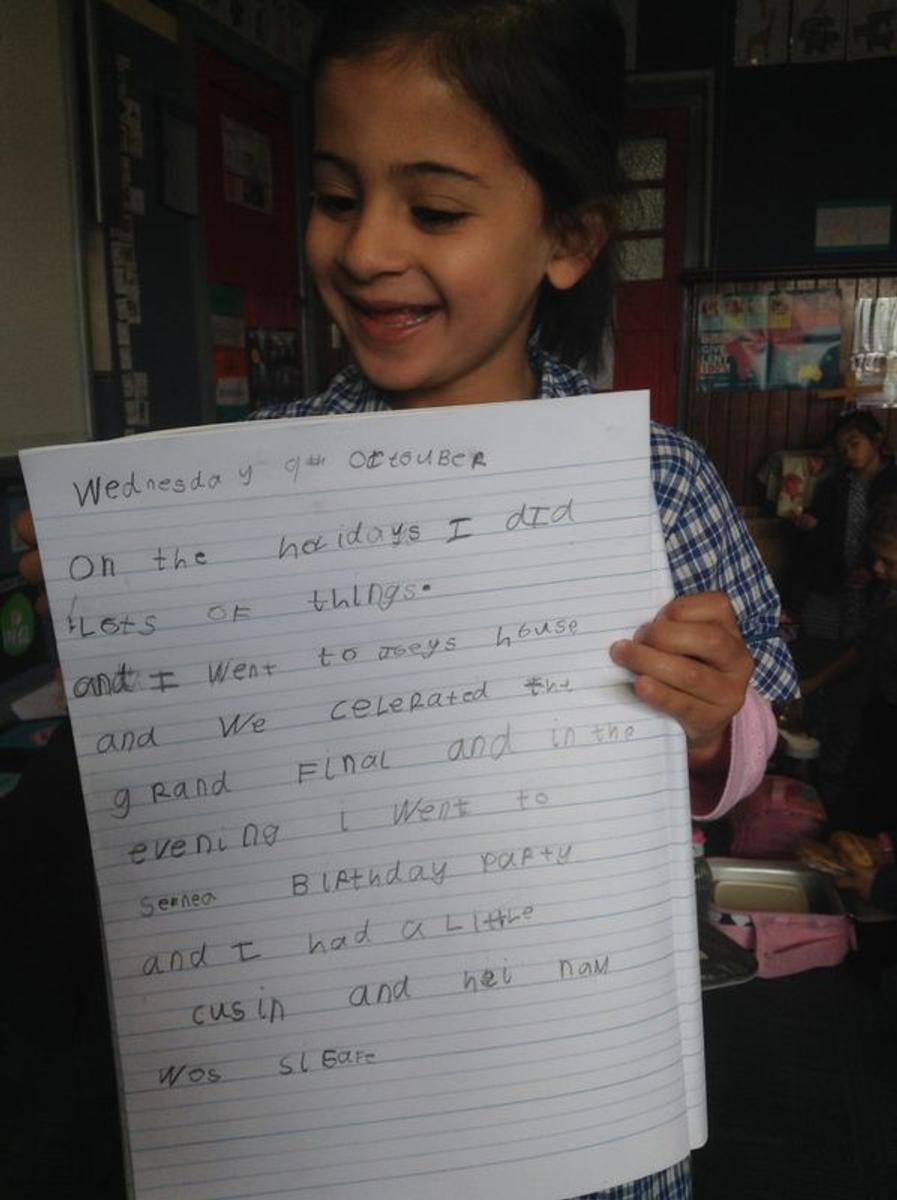 Wednesday 9th OctouBeR
On the holidays I dId
Lots OF things.
and I Went to Joeys house
and We CeLeRated the
gRand FinaL and in the
evening i Went to
BIRthday paRty
and I had a LittLe
cusin and hei nam
wos